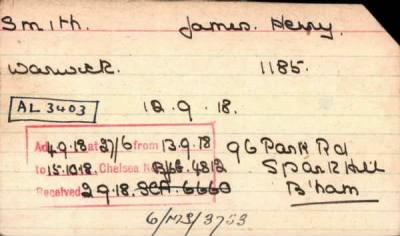 Smith. James. Henry.
Warwick. 1185.
AL 3403 12.9.18.
Ad 4.9.18 at 27/6 from 13.9.18 96 Park Rd
to 15.10.18. Chelsea No 4812 Sparkhill
Received 2.9.18. 6660 B'ham
6/MS/3753